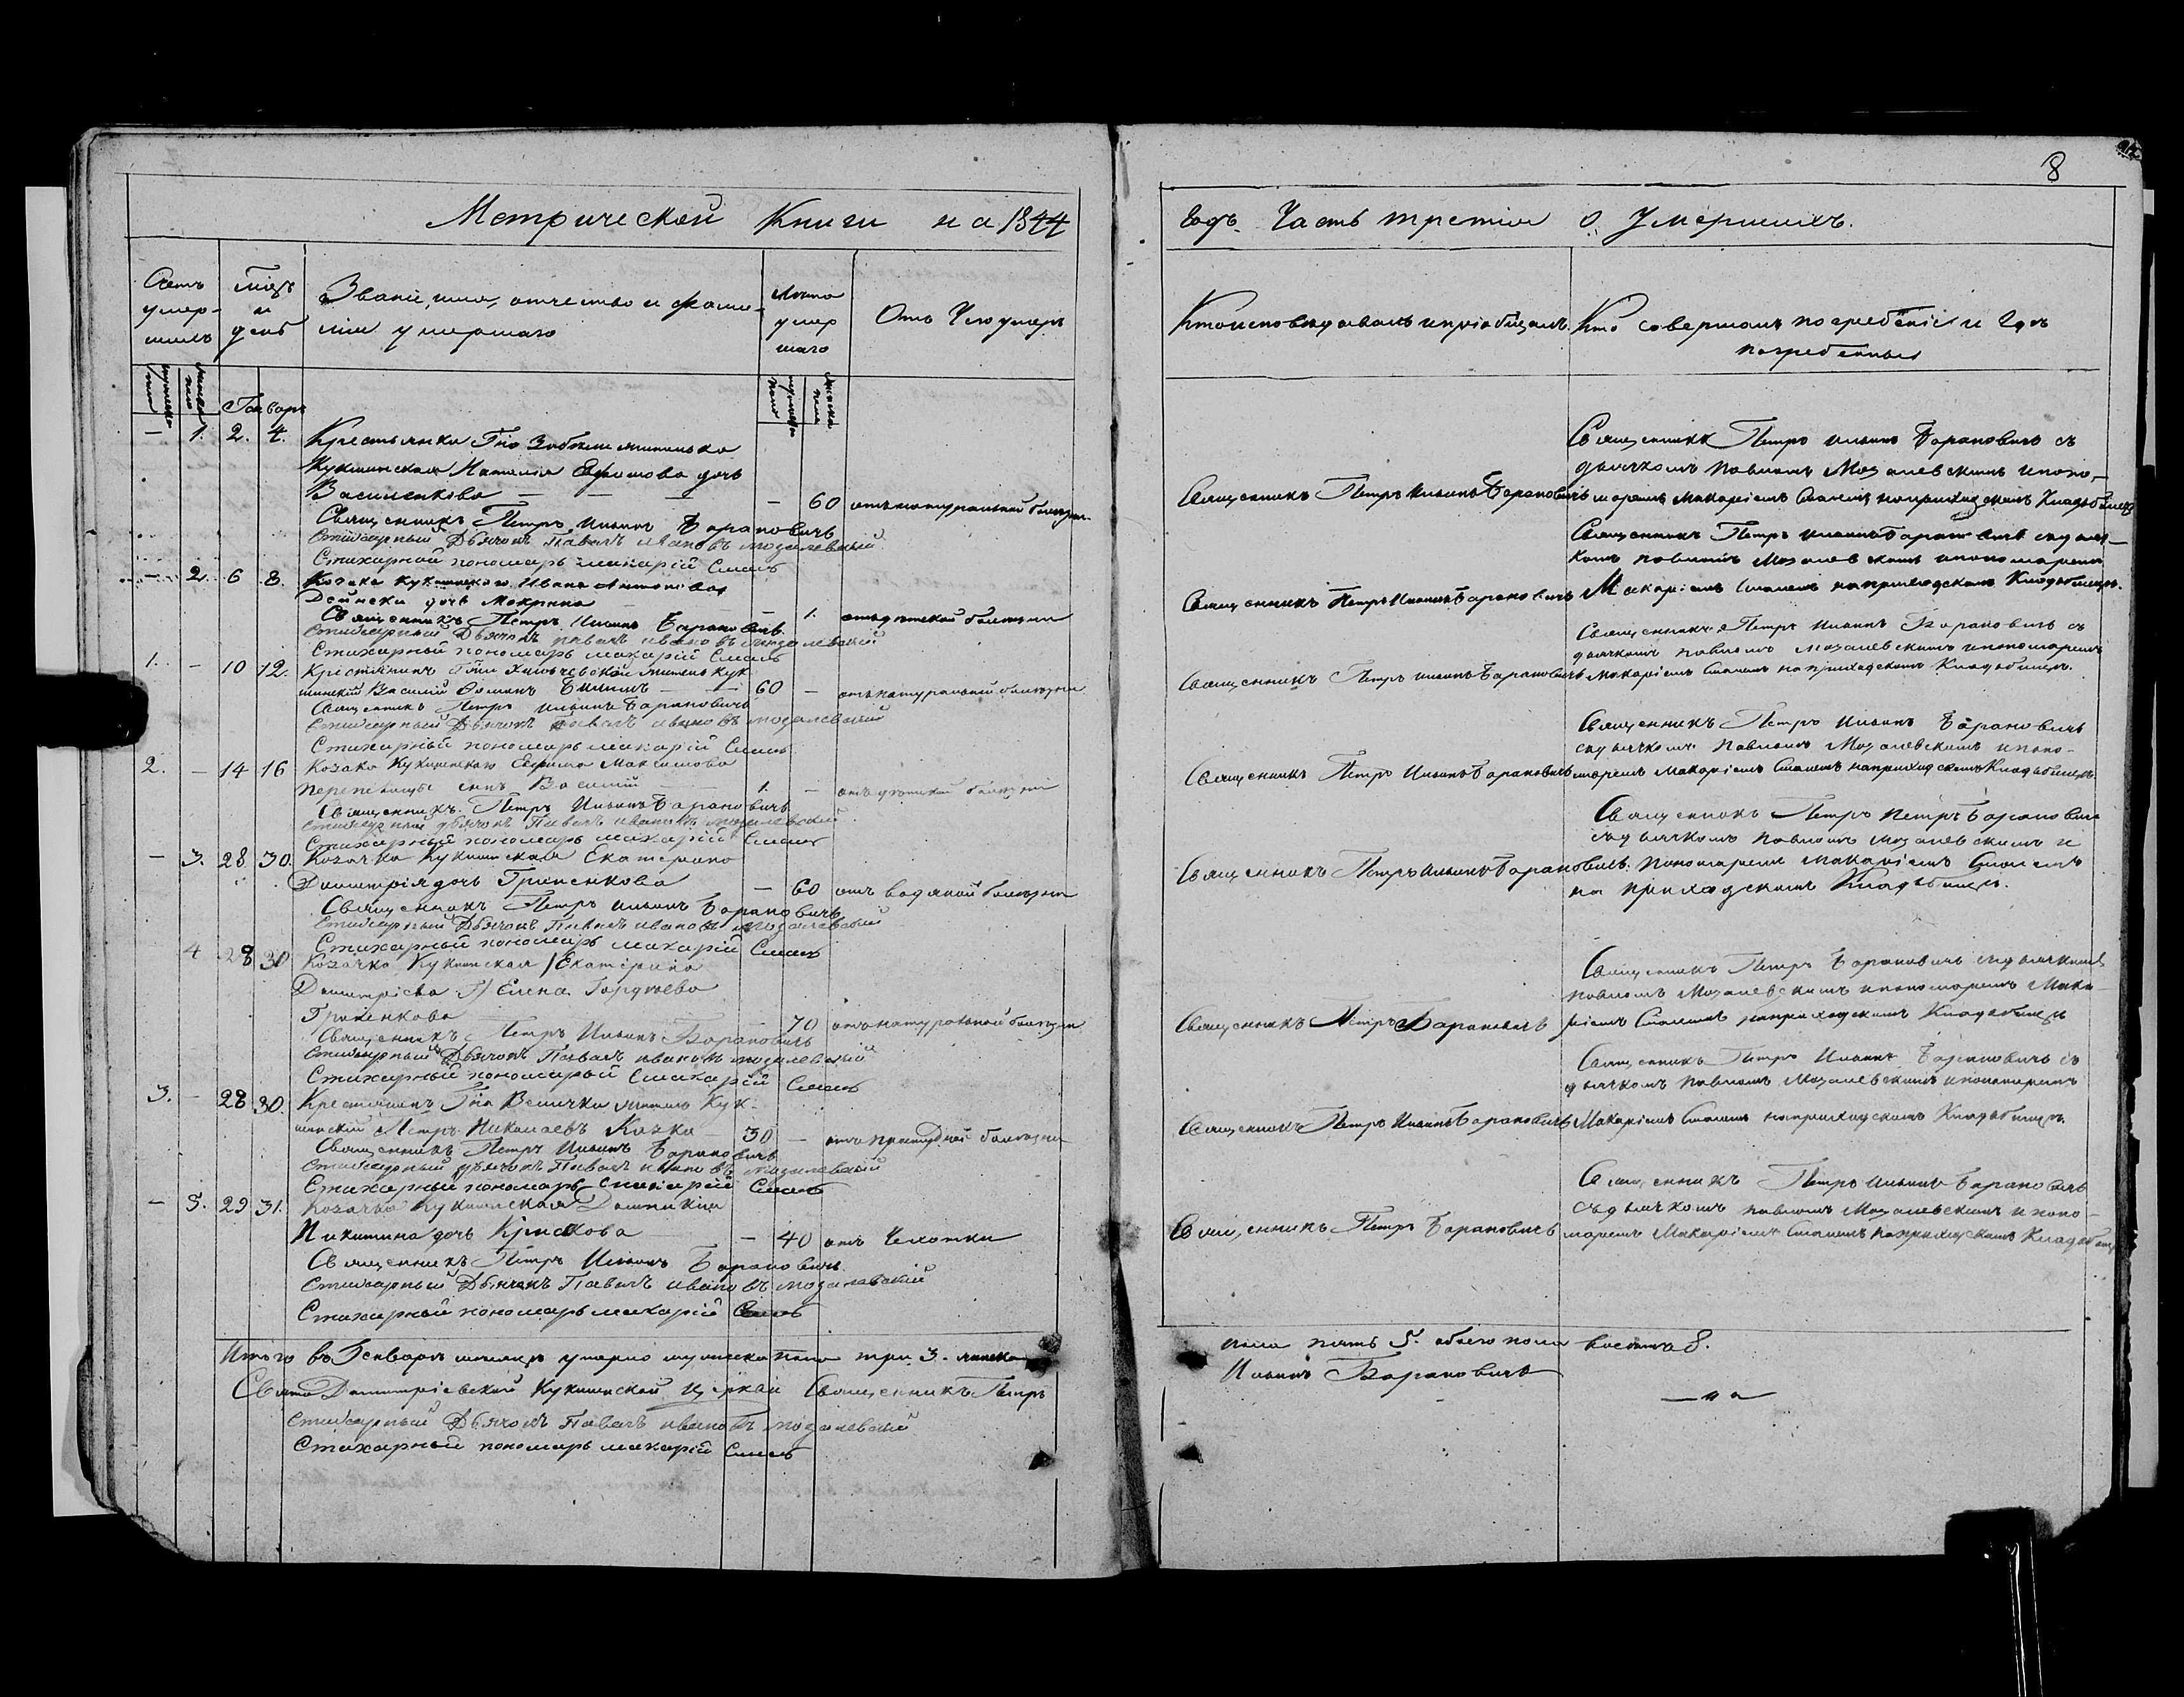 8
Метрической Книги на 1844
Годъ. Часть третія о Умершихъ.
Счетъ умер-шихъ
мѣсяцъ и день
Званіе, имя, отчество и фами-
лія умершаго
Лѣта умер шаго
Отъ Чего умеръ
Кто исповѣдывалъ и пріобщалъ.
Кто совершалъ погребеніе и Гдѣ
погребенны
мужеска пола
женска пола
Январь
мужеска пола
женска пола
— 1. 2. 4. Крестьянка Гпо
Кукшинская Наталія Ефимова дочь
Василенкова — — — — 60 отъ натуральной болѣзни
Священникъ Петръ Ильинъ Барановичъ
Стихарный Дьячокъ Павелъ Ивановъ Мозалевскій
Стихарный пономарь Макарій Смаль
Священникъ Петръ Ильинъ Барановичъ
Священникъ Петръ Ильинъ Барановичъ съ
дьячкомъ Павломъ Мозалевскимъ и поно-
маремъ Макаріемъ Смалемъ на приходскомъ Кладбищѣ
— 2. 6 8. Козака Кукшинского Ивана Антонова
Дейнеки дочь Макрина — 1. отъ дѣтской болѣзни
Священникъ Петръ Ильинъ Барановичъ
Стихарный Дьячокъ Павелъ Ивановъ Мозалевскій
Стихарный пономарь Макарій Смаль
Священникъ Петръ Ильинъ Барановичъ
Священникъ Петръ Ильинъ Барановичъ съ дьяч-
комъ Павломъ Мозалевскимъ и пономаремъ
Макаріемъ Смалемъ на приходскомъ Кладбищѣ.
1. — 10 12. Крестянинъ Гпжи житель Кук
шинский Василий Фоминъ — — 60 — отъ натуральной болѣзни
Священникъ Петръ Ильинъ Барановичъ
Стихарный Дьячокъ Павелъ Ивановъ Мозалевскій
Стихарный пономарь Макарій Смаль
Священникъ Петръ Ильинъ Барановичъ
Священникъ Петръ Ильинъ Барановичъ съ
дьячкомъ Павломъ Мозалевскимъ и пономаремъ
Макаріемъ Смалемъ на приходскомъ Кладбищѣ.
2. — 14 16 Козака Кукшинскаго Ефима Максимова
Перепелицы сынъ Василий — 1. — отъ дѣтской болѣзни
Священникъ Петръ Ильинъ Барановичъ
Стихарный дьячокъ Павелъ Ивановъ Мозалевскій
Стихарный пономарь Макарій Смаль
Священникъ Петръ Ильинъ Барановичъ
Священникъ Петръ Ильинъ Барановичъ
съ дьячкомъ Павломъ Мозалевскимъ и поно-
маремъ Макаріемъ Смалемъ на приходскомъ Кладбищѣ.
— 3. 28 30. Козачка Кукшинская Екатерина
Димитрія дочь Гриненкова — 60 отъ водяной болѣзни
Священникъ Петръ Ильинъ Барановичъ
Стихарный Дьячокъ Павелъ Ивановъ Мозалевскій
Стихарный пономарь Макарій Смаль
Священникъ Петръ Ильинъ Барановичъ.
Священникъ Петръ Петръ Барановичъ
съ дьячкомъ Павломъ Мозалевскимъ и
пономаремъ Макаріемъ Смалемъ
на приходскомъ Кладбищѣ.
4 28 30 Козачка Кукшинская /Екатерина
Димитріева Г/ Елена Гордѣева
Гриненкова — 70 отъ натуральной болѣзни
Священникъ Петръ Ильинъ Барановичъ
Стихарный Дьячокъ Павелъ Ивановъ Мозалевскій
Стихарный пономарый Смакарій Смаль
Священникъ Петръ Барановичъ
Священникъ Петръ Барановичъ съ дьячкомъ
Павломъ Мозалевскимъ и пономаремъ Мака-
ріемъ Смалемъ на приходскомъ Кладбищѣ
3. — 28 30. Крестянинъ Гпа Велички житель Кук-
шинский Петръ Николаевъ Качка 30 — отъ простудной болѣзни
Священникъ Петръ Ильинъ Барановичъ
Стихарный дьячокъ Павелъ Ивановъ Мозалевскій
Стихарный пономарь Смакарій Смаль
Священникъ Петръ Ильинъ Барановичъ
Священникъ Петръ Ильинъ Барановичъ съ
дьячкомъ Павломъ Мозалевскимъ и пономаремъ
Макаріемъ Смалемъ на приходскомъ Кладбищѣ.
— 5. 29 31. Козачка Кукшинская Домникия
Никитина дочь — 40 отъ Чахотки
Священникъ Петръ Ильинъ Барановичъ.
Стихарный Дьячокъ Павелъ Ивановъ Мозалевский
Стихарный пономарь Макарій Смаль
Священникъ Петръ Барановичъ
Священникъ Петръ Ильинъ Барановичъ
съ дьячкомъ Павломъ Мозалевскимъ и поно-
маремъ Макаріемъ Смалемъ на приходскомъ Кладбищѣ
Итого въ Генварѣ мѣсяцѣ умерло мужеска пола три 3. женска
пола пять 5. обоего пола восемь 8.
Свято Димитріевской Кукшинской Церкви Священникъ Петръ
Ильинъ Барановичъ
Стихарный Дьячокъ Павелъ Ивановъ Мозалевский
Стихарный пономарь Макарій Смаль